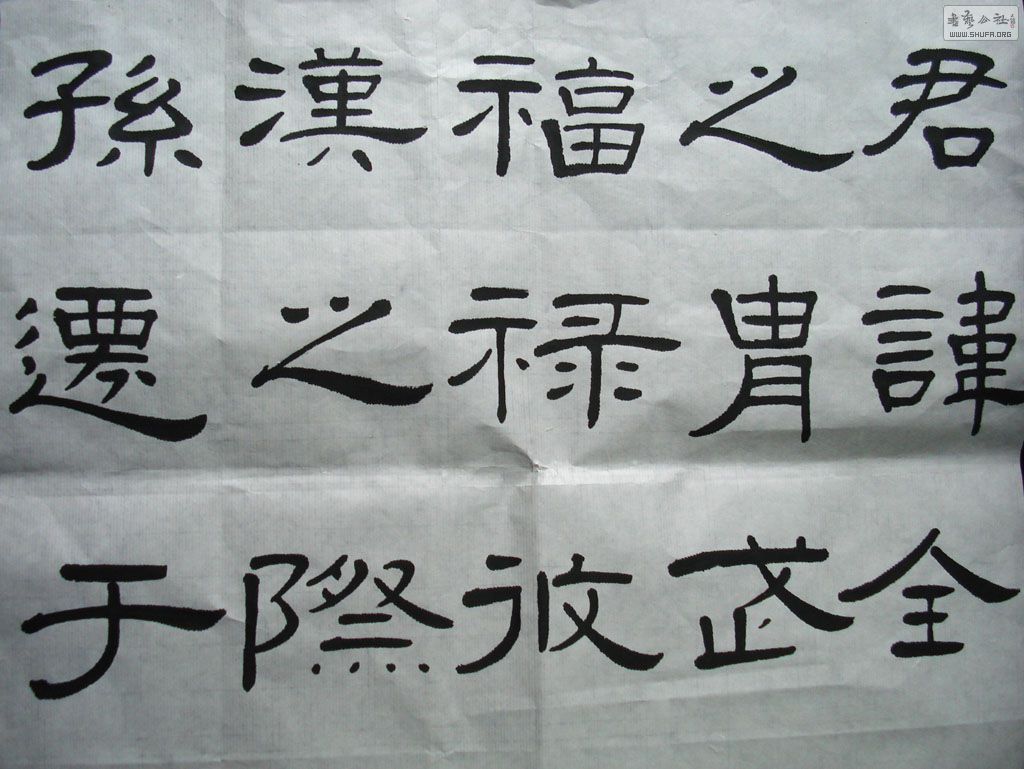 君諱全
之胄武
福禄攸
漢之際
孫遷于
书艺公社
WWW.SHUFA.ORG